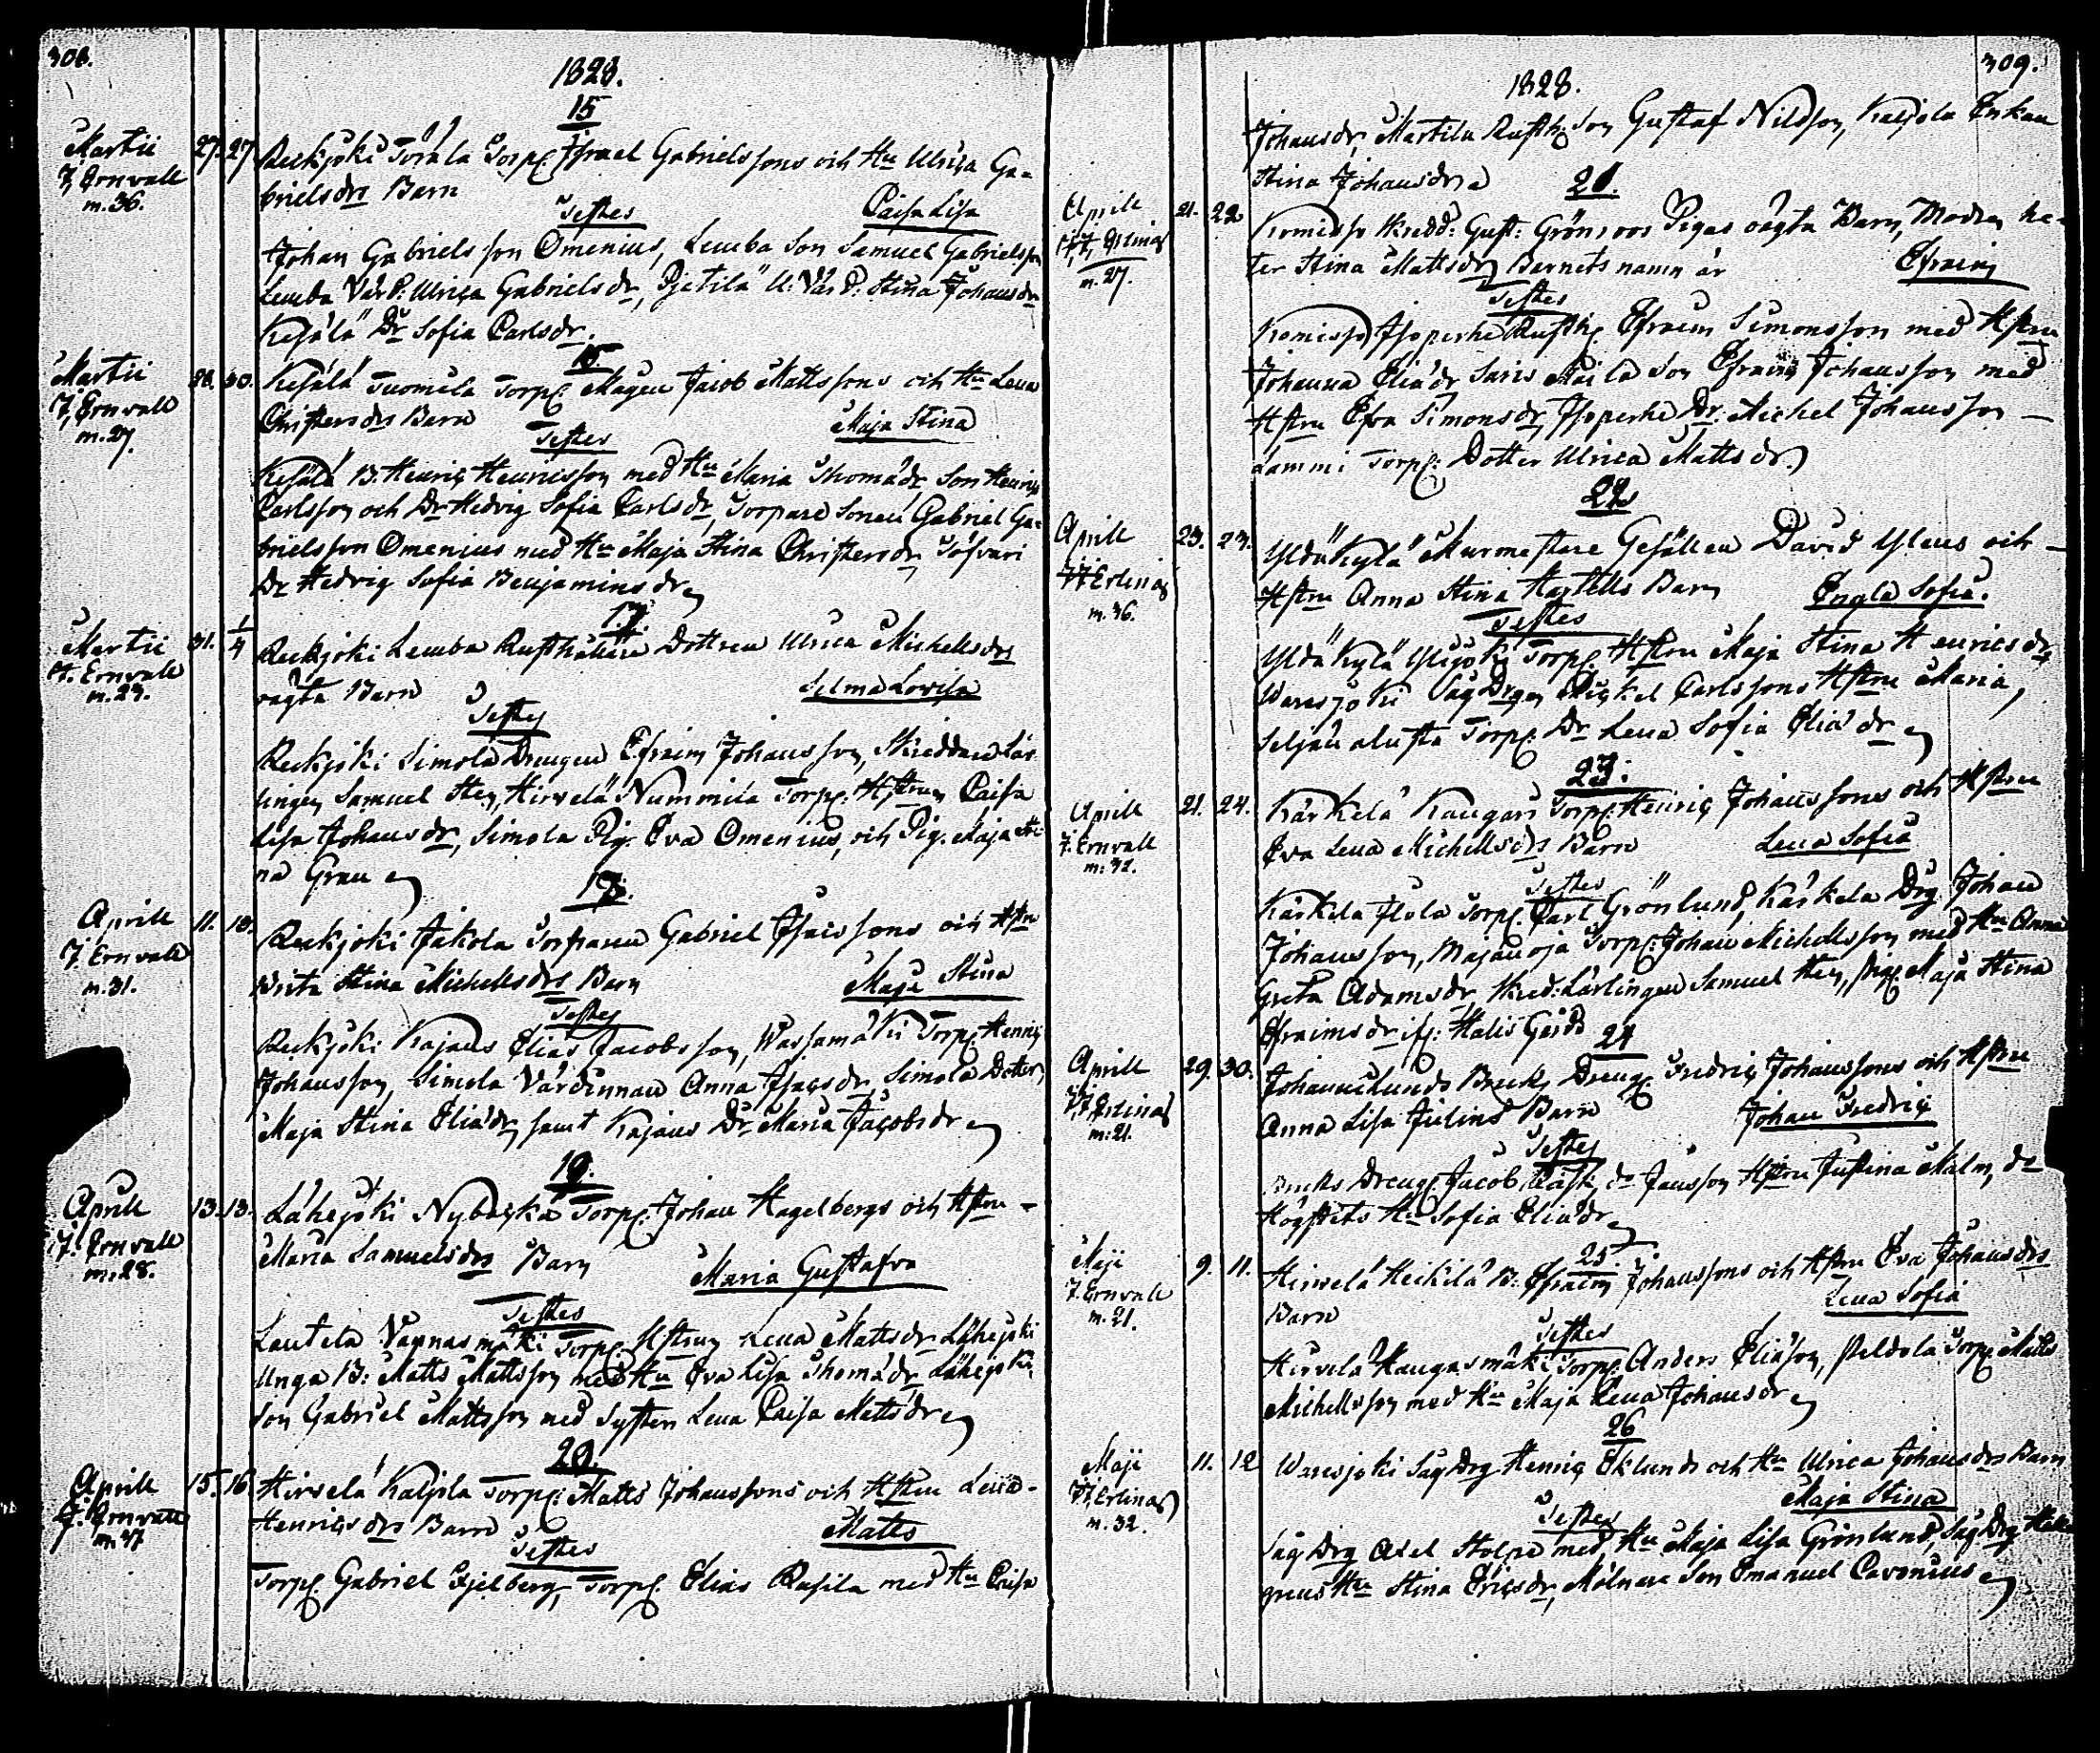 308.
1828.
15
Martii 27. 27 Reckjoki Torp. Israel Gabrielssons och Hu Ulrica Ga=
J. Ernvall
m. 36.
brielsdrs Barn
Testes Caisa Lisa
Johan Gabrielsson Omenius, Lemba Son Samuel Gabrielsson
Lemba Ulrica Gabrielsdr, Stina Johansdr
Kesälä Dr Sofia Carlsdr.
Martii 28. 30. Kesälä Tuomela Torp. Mågen Jacob Mattssons och Hu Lena
J. Ernvall
m. 27.
Christersdrs Barn Maja Stina
Testes
Kesälä B. Henric Henricsson med Hu Maria Thomädr Son Henric
Carlsson och Dr Hedvig Sofia Carlsdr, Torpare Sonen Gabriel Ga=
brielsson Omenius med Hu Maja Stina Christersdr,
Dr Hedvig Sofia Benjaminsdr
17.
Martii 31. 1/4 Reckjoki Lemba Rusthållare Dottren Ulrica Michelsdrs
J. Ernvall
m. 23.
oägta Barn Selma Lovisa
Testes
Reckjoki Simola Drengen Efraim Johansson, Skreddare Lär-
lingen Samuel Sten, Hirvelä Nummila Torp. Hstrun Caisa
Lisa Johansdr, Simola Pig. Eva Omenius, och Pig. Maja Sti
na Gran
18.
Aprill 11. 13. Reckjoki Jakola Torparen Gabriel Isacssons och Hstru
J. Ernvall
m. 31.
Brita Stina Michelsdrs Barn Maja Stina
Testes
Reckjoki Kajans Elias Jacobsson, Torp. Henric
Johansson, Simola Värdinnan Anna Isacsdr, Simola Dotter
Maja Stina Eliädr, samt Kajans Dr Maria Jacobsdr
19.
Aprill 13. 13. Lähejoki Nybacka Torp. Johan Hagelbergs och Hstru
J. Ernvall
m. 28.
Maria Samuelsdrs Barn Maria Gustafva
Testes
Lautela Torp. Hstrun Lena Mattsdr Lähejoki
Unga B. Matts Mattsson med Hu Eva Lisa Thomädr Lähejoki
Son Gabriel Mattsson med Systren Lena Caisa Mattsdr
20.
Aprill 15. 16. Hirvelä Kaljola Torp. Matts Johanssons och Hstru Lena
J. Ernvall
m. 47
Henricsdrs Barn Matts
Testes
Torp. Gabriel Fjelberg, Torp. Elias Rasila med Hu Caisa
309.
1828.
Johansdr, Martila Rusth. Son Gustaf Nilsson, Kaljola Enkan
Stina Johansdr
21.
Aprill 21. 22 Komisso Skredd: Gust: Grönroos Pigas oägta Barn, Modren he-
m. 27.
ter Stina Mattsdr, Barnets namn är Efraim
Testes
Komisso Isoperhe Rusth. Efraim Simonsson med Hstru
Johanna Eliädr Son Efraim Johansson med
Hstru Efva Simonsdr, Isoperhe Dr. Michel Johansson
Lammi Torp. Dotter Ulrica Mattsdr
22
Aprill 23. 23. Yldäkylä Murmestare Gesällen David och
m. 36.
Hstru Anna Stina Hartells Barn Engla Sofia.
Testes
Yldäkylä Ylijoki Torp. Hstru Maja Stina Henricsdr,
Waresjoki Såg Drgen Mickel Carlssons Hstru Maria,
Seljänalusta Torp. Dr Lena Sofia Eliädr
23.
Aprill 21. 24. Kärkelä Kangars Torp. Henric Johanssons och Hstru
J. Ernvall
m: 32.
Eva Lena Michelsdrs Barn Lena Sofia
Testes
Kärkelä Torp. Carl Grönlund, Kärkelä Drg Johan
Johansson, Majanoja Torp. Johan Michelsson med Hu Anna
Greta Adamsdr, Skred. Lärlingen Samuel Sten, Pig. Maja Stina
Efraimsdr
24
Aprill 29. 30. Johannislunds Bruks Dreng. Fredric Johanssons och Hstru
m: 21.
Anna Lisa Julins Barn Johan Fredric
Testes
Bruks Dreng. Jacob Hstru Justina Malm,
Hu Sofia Eliädr
25.
Maji 9. 11. Hirvelä Heikilä B. Efraim Johanssons och Hstru Eva Johansdrs
J. Ernvall
m. 21.
Barn Lena Sofia
Testes
Hirvelä Kangasmäki Torp. Anders Eliäson, Peldola Torp. Matts
Michelsson med Hu Maja Lena Johansdr
26
Maji 11. 12 Waresjoki Såg Drg Henric Eklunds och Hu Ulrica Johansdrs Barn
m. 32.
Maja Stina
Testes
Såg Drg Axel Stolpe med Hu Maja Lisa Grönlund, Såg Drg
Hu Stina Ericsdr, Mölnare Son Emanuel Cavonius